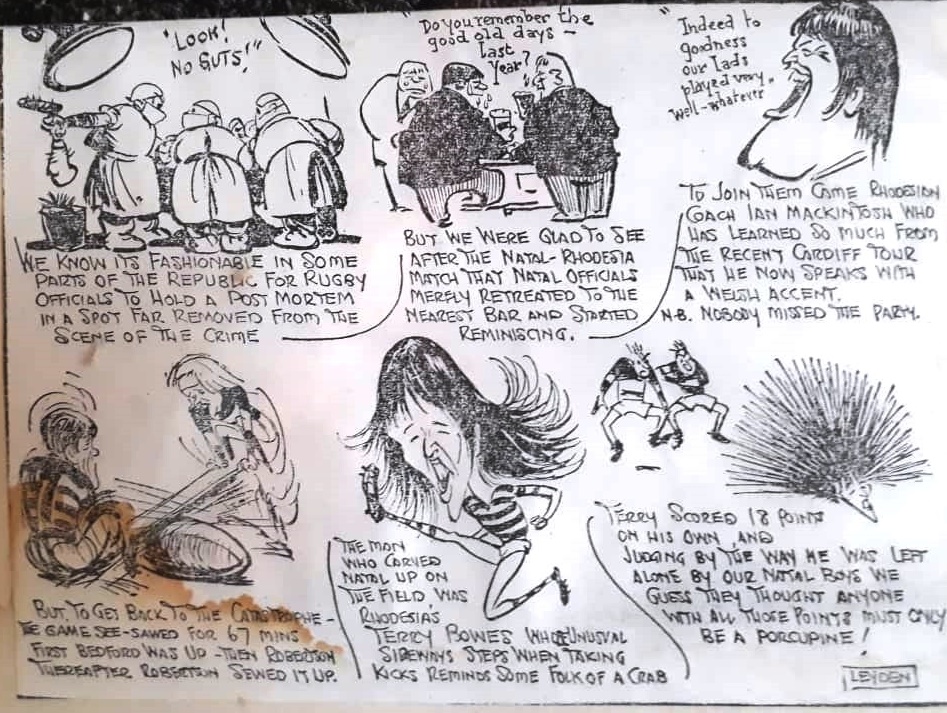 "LOOK!
NO GUTS!"
WE KNOW ITS FASHIONABLE IN SOME
PARTS OF THE REPUBLIC FOR RUGBY
OFFICIALS TO HOLD A POST MORTEM
IN A SPOT FAR REMOVED FROM THE
SCENE OF THE CRIME
"Do you remember the
good old days —
Last
Year?"
BUT WE WERE GLAD TO SEE
AFTER THE NATAL-RHODESIA
MATCH THAT NATAL OFFICIALS
MERELY RETREATED TO THE
NEAREST BAR AND STARTED
REMINISCING.
"Indeed to
goodness
our Lads
played very,
well-whatever
TO JOIN THEM CAME RHODESIAN
COACH IAN MACKINTOSH WHO
HAS LEARNED SO MUCH FROM
THE RECENT CARDIFF TOUR
THAT HE NOW SPEAKS WITH
A WELSH ACCENT.
N.B. NOBODY MISSED THE PARTY.
BUT TO GET BACK TO THE CATASTROPHE —
THE GAME SEE-SAWED FOR 67 MINS
FIRST BEDFORD WAS UP - THEN ROBERTSON
THEREAFTER ROBERTSON SEWED IT UP.
THE MAN
WHO CARVED
NATAL UP ON
THE FIELD WAS
RHODESIA'S
TERRY BOWES WHOSE UNUSUAL
SIDEWAYS STEPS WHEN TAKING
KICKS REMINDS SOME FOLK OF A CRAB
TERRY SCORED 18 POINTS
ON HIS OWN AND
JUDGING BY THE WAY HE WAS LEFT
ALONE BY OUR NATAL BOYS WE
GUESS THEY THOUGHT ANYONE
WITH ALL THOSE POINTS MUST ONLY
BE A PORCUPINE!
LEYDEN